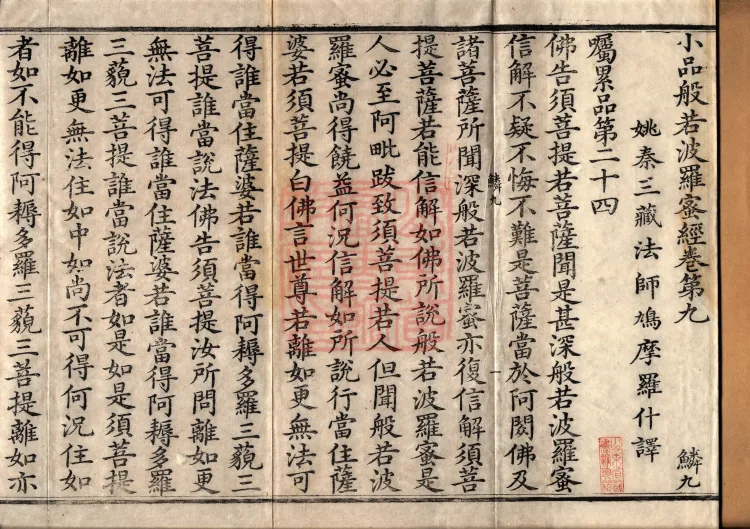 小品般若波羅蜜經卷第九
鱗九
姚秦三藏法師鳩摩羅什譯
囑累品第二十四
佛告須菩提若菩薩聞是甚深般若波羅蜜
信解不疑不悔不難是菩薩當於阿閦佛及
鱗九
一
諸菩薩所聞深般若波羅蜜亦復信解須菩
提菩薩若能信解如佛所說般若波羅蜜是
人必至阿毗跋致須菩提若人但聞般若波
羅蜜尚得饒益何況信解如所說行當住薩
婆若須菩提白佛言世尊若離如更無法可
得誰當住薩婆若誰當得阿耨多羅三藐三
菩提誰當說法佛告須菩提汝所問離如更
無法可得誰當住薩婆若誰當得阿耨多羅
三藐三菩提誰當說法者如是如是須菩提
離如更無法住如中如尚不可得何況住如
者如不能得阿耨多羅三藐三菩提離如亦